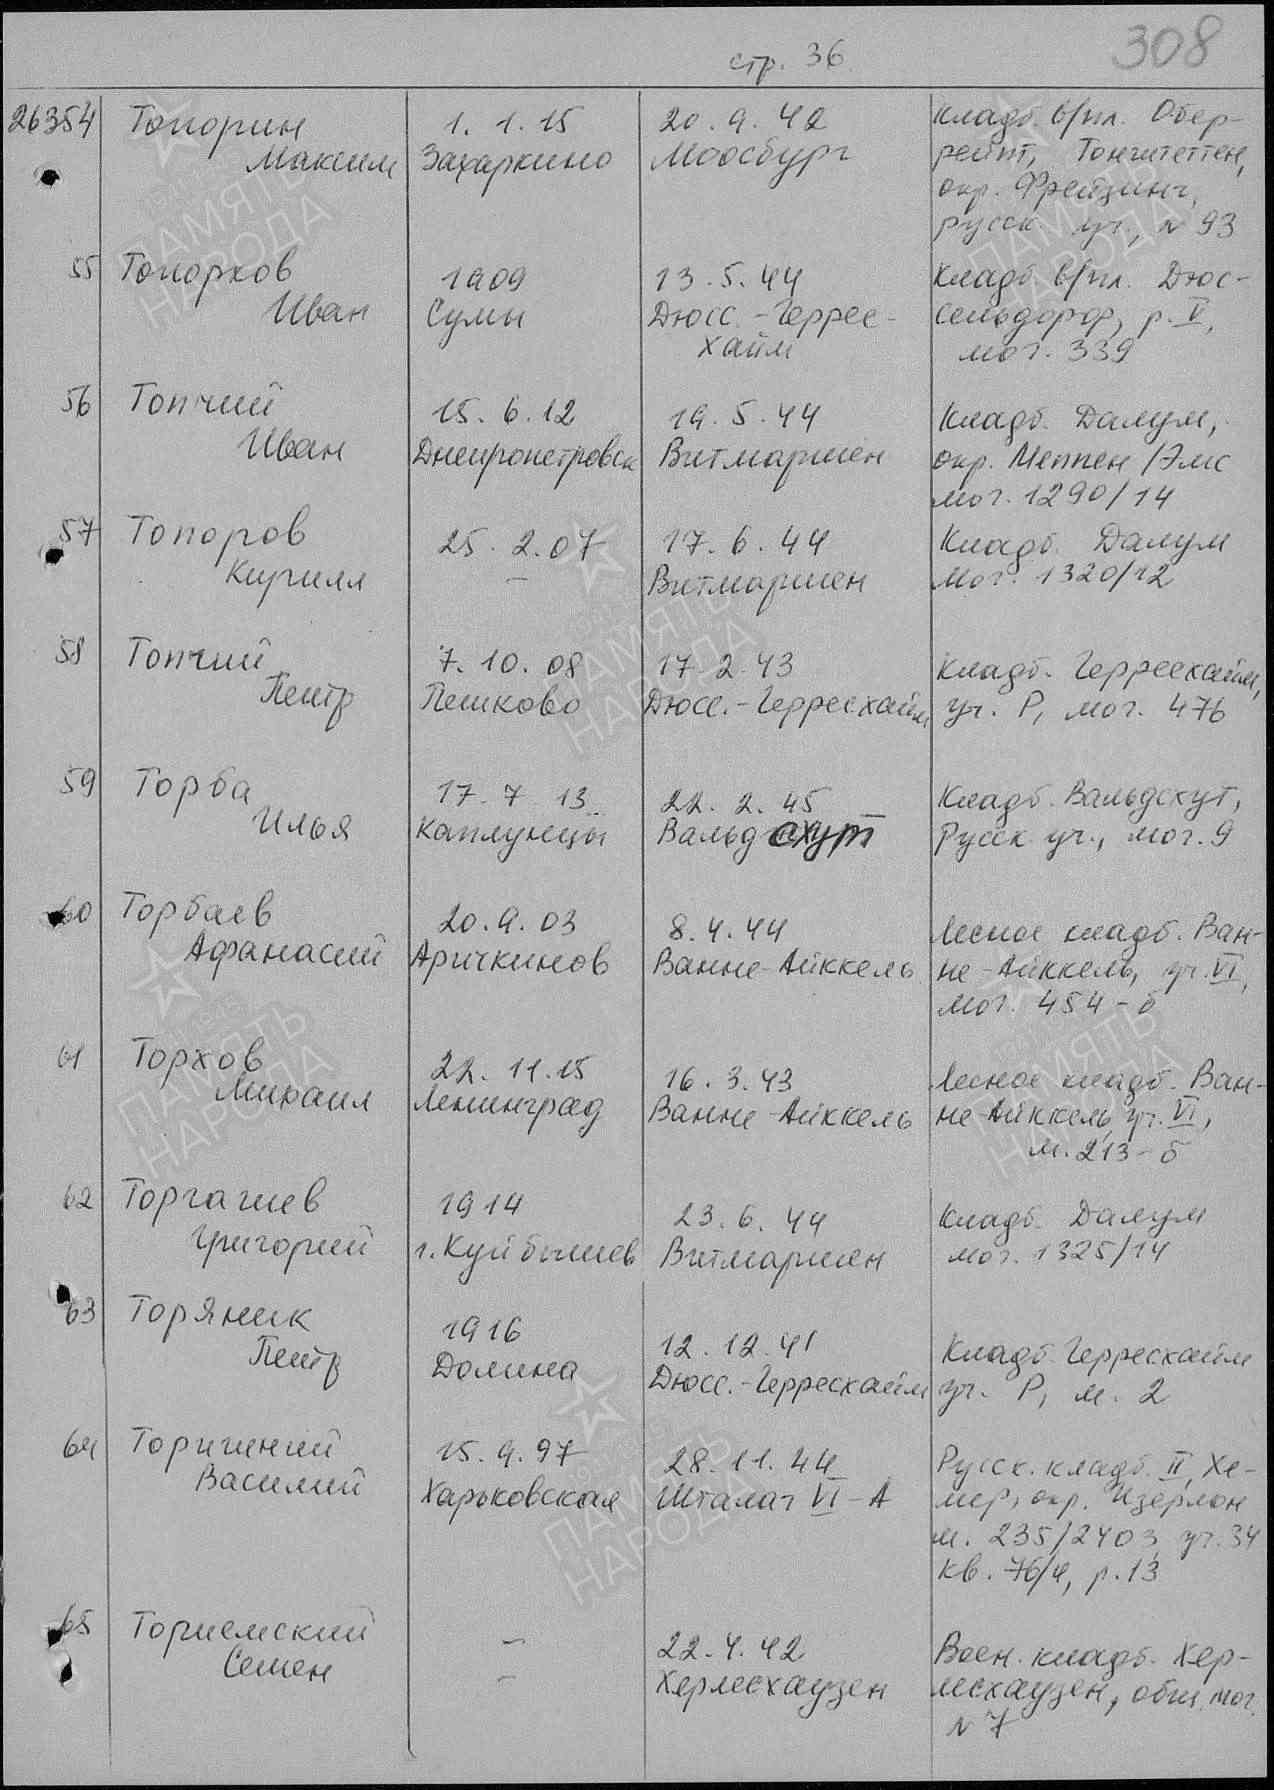 308
стр. 36
26354 Топорин 1. 1. 15 20. 9. 42 Кладб. в/пл. Обер-
Максим Захаркино Моосбург рейт, Тонгитеттен,
окр. Фрейзинг,
русск. уч., N 93
55 Топорков 1909 13. 5. 44 Кладб. в/пл. Дюс-
Иван Сумы Дюсс.-Геррес- сельдорф, р. V,
хайм мог. 339
56 Топчий 15. 6. 12 19. 5. 44 Кладб. Далум,
Иван Днепропетровск Витмаршен окр. Меппен/Эмс
мог. 1290/14
57 Топоров 25. 2. 07 17. 6. 44 Кладб. Далум
Кирилл – Витмаршен мог. 1320/12
58 Топчий 7. 10. 08 17 2. 43 Кладб. Герресхайм,
Петр Пешково Дюсс.-Герресхайм уч. Р, мог. 476
59 Торба 17. 7 13 22. 2. 45 Кладб. Вальдсхут,
Илья Каплунцы Вальдсхут Русск. уч., мог. 9
60 Торбаев 20. 9. 03 8. 4. 44 Лесное кладб. Ван-
Афанасий Аричкинов Ванне-Айккель не-Айккель, уч. VI,
мог. 454-б
61 Торхов 22. 11. 15 16. 3. 43 Лесное кладб. Ван-
Михаил Ленинград Ванне-Айккель не-Айккель, уч. VI,
м. 213-б
62 Торгашев 1914 23. 6. 44 Кладб. Далум
Григорий г. Куйбышев Витмаршен мог. 1325/14
63 Торяник 1916 12. 12. 41 Кладб. Герресхайм
Петр Долина Дюсс.-Герресхайм уч. Р, м. 2
64 Торишний 15. 9. 97 28. 11. 44 Русск. кладб. II, Хе-
Василий Харьковская Шталаг VI-А мер, окр. Изерлон
м. 235/2403, уч. 34
кв. 76/4, р. 13
65 Ториемский – 22. 4. 42 Воен. кладб. Хер-
Семен – Херлесхаузен лесхаузен, общ. мог.
N 7
ПАМЯТЬ
НАРОДА